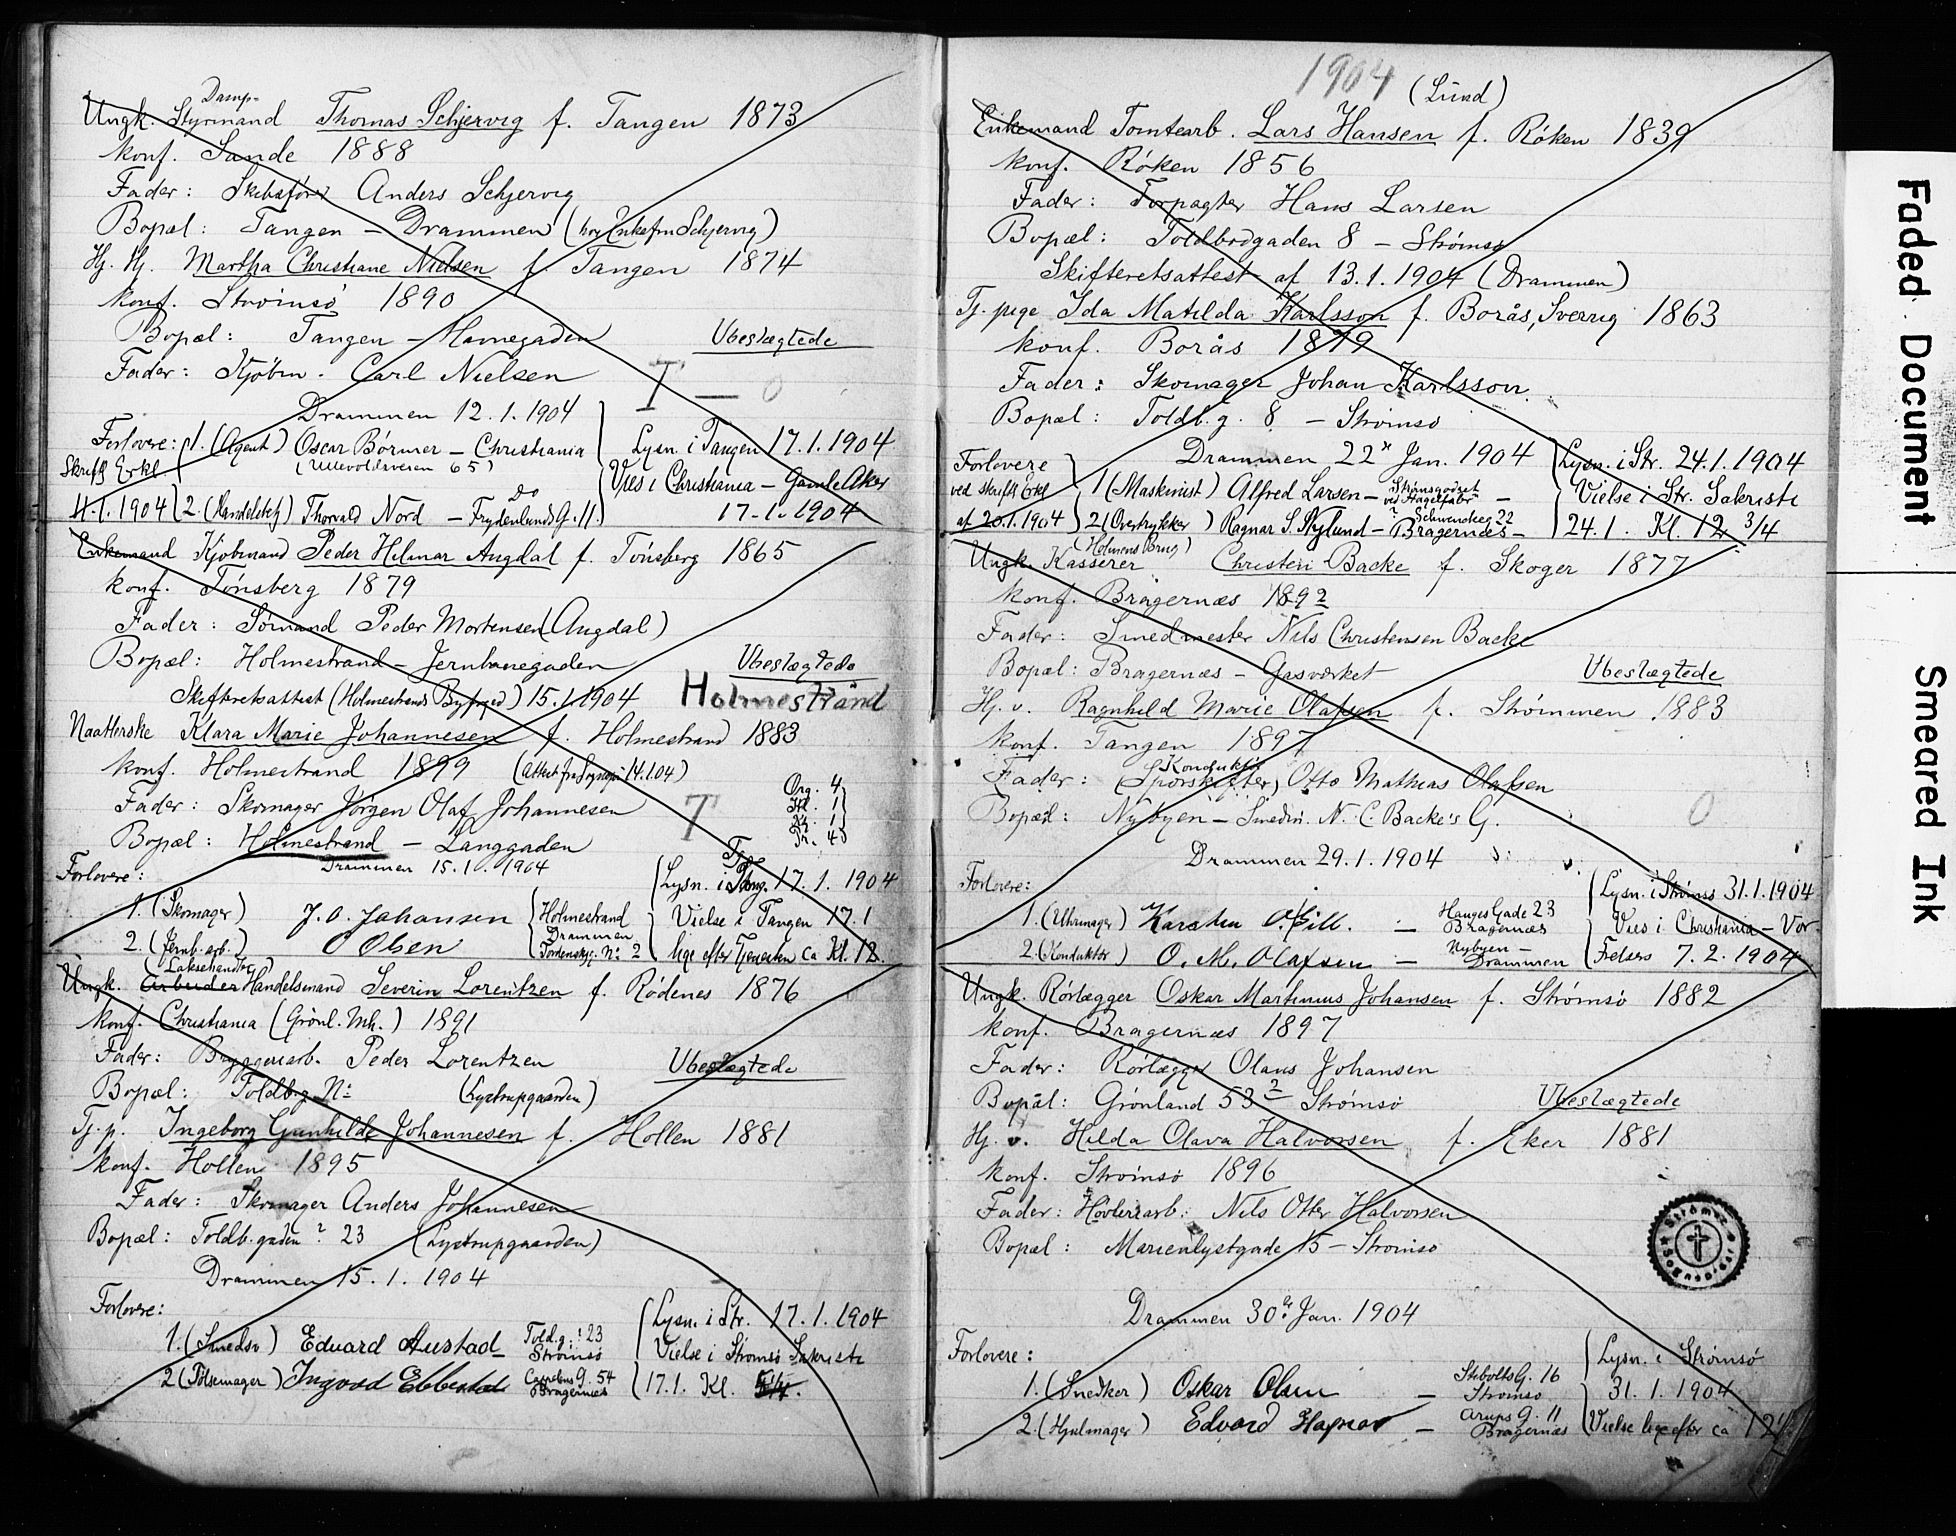 Damp-
Ungk. Styrmand Thomas Schjervig f. Tangen 1873
konf. Sande 1888
Fader: Skibsfører Anders Schjervig
Bopæl: Tangen – Drammen (hos Enkefru Schjervig)
Hj. Hj. Martha Christiane Nielsen f. Tangen 1874
konf. Strömsö 1890
Bopæl: Tangen – Havnegaden Ubeslægtede
Fader: Kjöbm. Carl Nielsen T — 0
Drammen 12.1.1904
Forlovere: 1. (Agent) Oscar Börmer – Christiania Lysn. i Tangen 17.1.1904
Skriftl. Erkl. (Ullevoldsveien 65) Vies i Christiania – Gamle Aker
11.1.1904 2. (Handelsbetj) Thorvald Nord – Frydenlunds G. 11. Do 17-1. 1904
Enkemand Kjöbmand Peder Hilmar Angdal f. Tönsberg 1865
konf. Tönsberg 1879
Fader: Sömand Peder Mortensen (Angdal)
Bopæl: Holmestrand – Jernbanegaden Ubeslægtede
Skifteretsattest (Holmestrands Byfoged) 15.1.1904 Holmestrand
Naatlerske Klara Marie Johannesen f. Holmestrand 1883
konf. Holmestrand 1899 (Attest fra Sognepr. 14.1.04)
Fader: Skomager Jörgen Olaf Johannesen T
Org. 4
Kl. 1
Kg. 1
Pr. 4
Bopæl: Holmestrand – Langgaden
Drammen 15.1.1904
Forlovere: Lysn. i Tang. 17.1.1904
1. (Skomager) J. O. Johansen Holmestrand Vielse i Tangen 17.1
2. (Jernb. arb.) O Olsen Drammen Tordenskj. No 2 lige efter Tjenesten ca Kl. 12.
(Laksehandler)
Ungk. Arbeider Handelsmand Severin Lorentzen f. Rödenes 1876
konf. Christiania (Grönl. Mh.) 1891
Fader: Bryggeriarb. Peder Lorentzen
Bopæl: Toldb.g No (Lystrupgaarden) Ubeslægtede
Tj. p. Ingeborg Gunhilde Johannesen f. Hollen 1881
konf. Hollen 1895
Fader: Skomager Anders Johannesen
Bopæl: Toldb. gaden ? 23 (Lystrupgaarden)
Drammen 15.1.1904
Forlovere: Lysn. i Str. 17.1.1904
1. (Smedsv) Edvard Austad – Told.g. ! 23 Strömsö Vielse i Strömsö Sakristi
2 (Pölsemager) Ingvod Ebbestad G. 54 Bragernæs 17.1. Kl.
1904
(Lund)
Enkemand Tomtearb. Lars Hansen f. Röken 1839
konf. Röken 1856
Fader: Forpagter Hans Larsen
Bopæl: Toldbodgaden 8 – Strömsö
Skifteretsattest af 13.1.1904 (Drammen)
Tj. pige Ida Matilda Karlsson f. Borås, Sverrig 1863
konf. Borås 1879
Fader: Skomager Johan Karlsson
Bopæl: Toldb.g. 8 – Strömsö
Drammen 22 Jan. 1904
Forlovere Lysn. i Str. 24.1.1904
ved skriftl. Erkl 1 (Maskinist) Alfred Larsen – Strömsgodset ved Hagelfabr – Vielse i Str. Sakristi
af 20.1.1904 2 (Overtrykker) Ragnar S. Nylund – Bragernæs – 24.1. Kl. 12 3/4
(Holmens Brug)
Ungk. Kasserer Christen Backe f. Skoger 1877
konf. Bragernæs 1892
Fader: Smedmester Nils Christensen Backe
Bopæl: Bragernæs – Gasværket Ubeslægtede
Hj. v. Ragnhild Marie Olafsen f. Strömmen 1883
konf. Tangen 1897
Konduktör
Fader: (Sporskifter) Otto Mathias Olafsen
Bopæl: Nybyen – Smedm. N. C. Backe's G. 0
Drammen 29.1.1904
Forlovere: Lysn. i Strömsö 31.1.1904
1. (Uhrmager) Karsten – Hauges Gade 23 Bragernæs Vies i Christiania – Vor
2. (Konduktör) O. M. Olafsen – Nybyen – Drammen Frelsers 7.2.1904
Ungk. Rörlægger Oskar Martinius Johansen f. Strömsö 1882
konf. Bragernæs 1897
Fader: Rörlægger Olaus Johansen
Bopæl: Grönland 53 2 Strömsö Ubeslægtede
Hj. v. Hilda Olava Halvorsen f. Eker 1881
konf. Strömsö 1896
Fader: Hövleriarb. Nils Otter Halvorsen
Bopæl: Marienlystgade 15 – Strömsö
Drammen 30 Jan. 1904
Forlovere: Lysn. i Strömsö
1. (Snedker) Oskar Olsen – Stibolts G. 16 Strömsö 31.1.1904
2. (Hjulmager) Edvard – Arups G. 11 Bragernæs Vielse lige efter ca 12
Faded Document
Smeared Ink